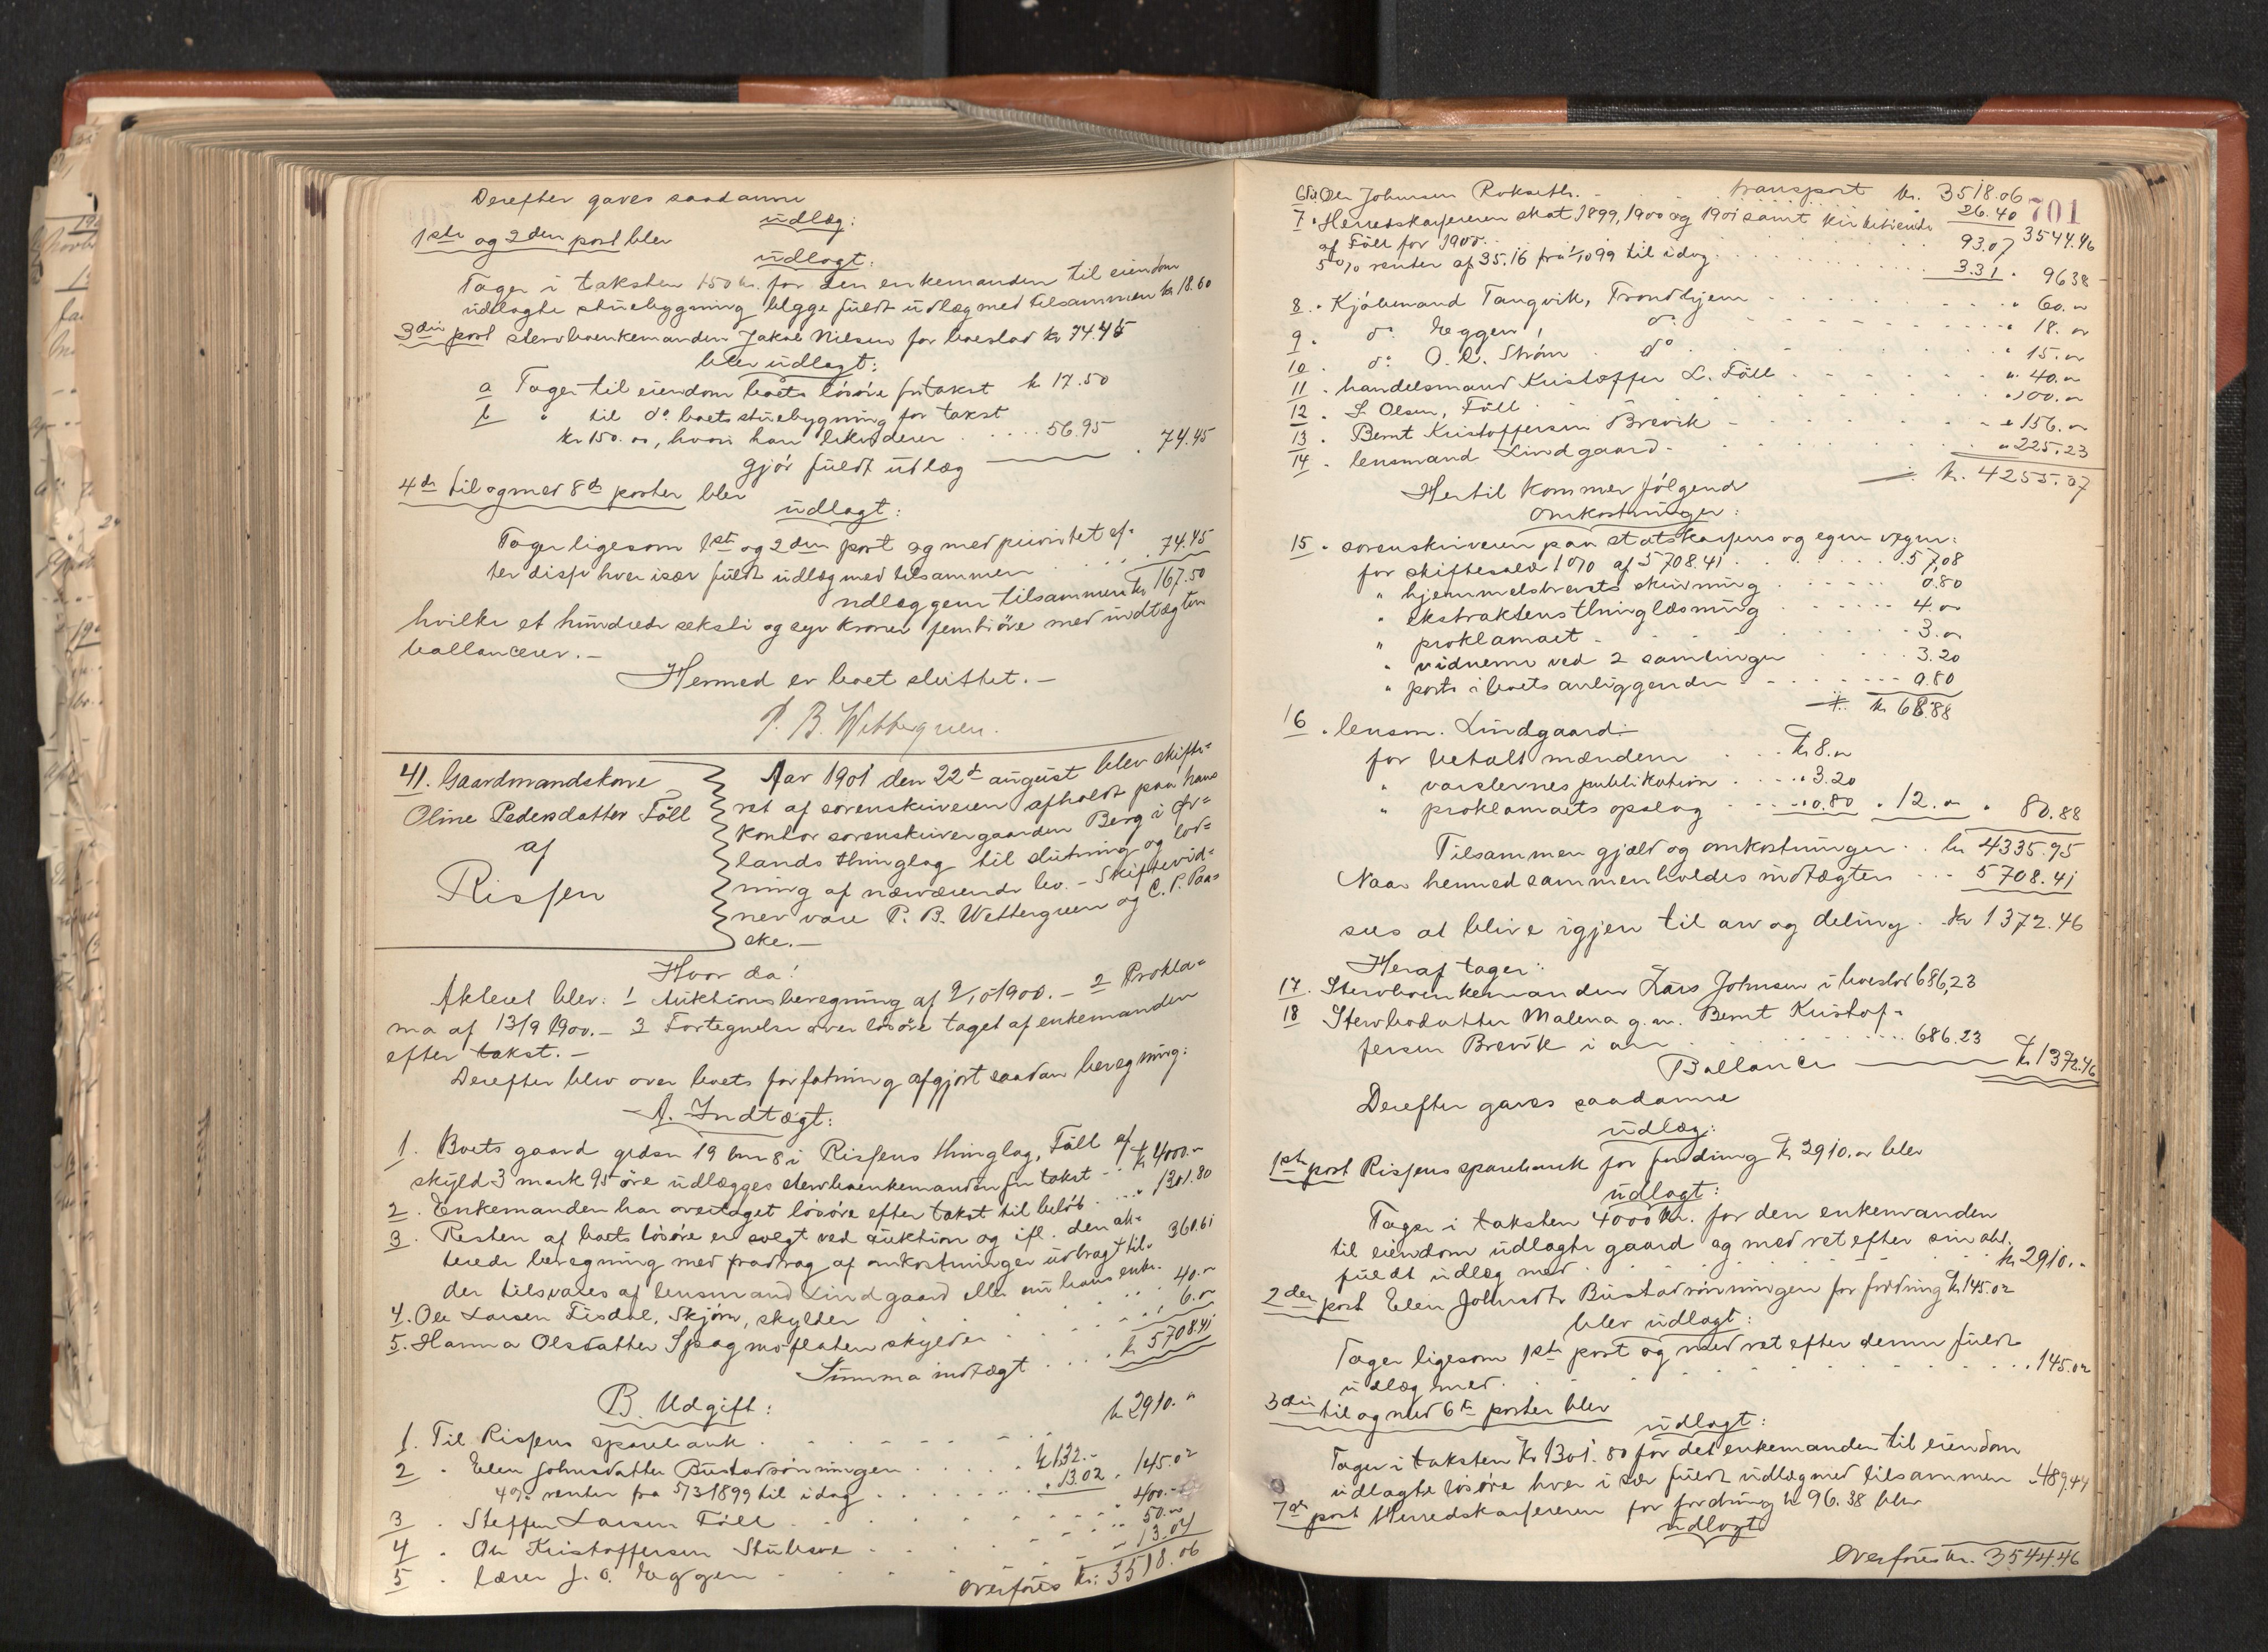 Derefter gaves saadanne
udlæg:
1ste og 2den post blev
udlagt:
Tager i taksten 150 kr. for den enkemanden til eiendom
udlagte stuebygning begge fuldt udlæg med tilsammen kr 18.60
3die post stervboenkemanden Jakob Nilsen for boeslod kr 74.45
blev udlagt:
a Tager til eiendom boets løsøre for takst kr 17.50
b " til do boets stuebygning for takst
kr 150.00, hvori han likviderer .... 56.95
gjør fuldt udlæg . 74.45
4de til og med 8de poster blev
udlagt:
Tager ligesom 1ste og 2den post og med prioritet ef-
ter disse hver især fuldt udlæg med tilsammen . 74.45
udlæggene tilsammen kr 167.50
hvilke et hundrede seksti og syv kroner femti øre med indtægten
ballancerer. -
Hermed er boet sluttet. -
P. B. Wettergreen.
41. Gaardmandskone
Oline Pedersdatter Föll
af
Rissen
Aar 1901 den 22de august blev skifte-
ret af sorenskriveren afholdt paa hans
kontor sorenskrivergaarden Berg i Ør-
lands thinglag til slutning og lod-
ning af nærværende bo. - Skiftevid-
ner vare P. B. Wettergreen og C. P. Paas
ske. -
Hvor da!
Akteret blev: 1 Auktionsberegning af 9/10 1900. - 2 Prokla-
ma af 13/9 1900. - 3 Fortegnelse over løsøre taget af enkemanden
efter takst. -
Derefter blev over boets forfatning afgjort saadan beregning:
A. Indtægt:
1. Boets gaard gdsn 19 bn 8 i Rissens thinglag, Föll af
skyld 3 mark 95 öre udlægges stervboenkemanden for takst - kr 4000.00
2. Enkemanden har overtaget løsøre efter takst til beløb .... " 1301.80
3. Resten af boets løsøre er solgt ved auktion og ifl. den ak-
terede beregning med fradrag af omkostninger udbragt til " 360.61
der tilsvares af lensmand Lindgaard eller nu hans enke.
4. Ole Larsen Fisdal, Skjørn, skylder . . . 40.00
5. Hanna Olsdatter Spagmoflaten skylder . . . 6.00
Summa indtægt .... kr 5708.41
B. Udgift:
1. Til Rissens sparebank . . . kr 2910.00
2 . Elen Johnsdatter Bustadrønningen . . . kr 132.-
4% renter fra 5/3 1899 til idag . . . " 13.02 " 145.02
3 . Steffen Larsen Föll . . . 400.-
4 . Ole Kristoffersen . . . 50.00
5 . lærer J. O. Eggen . . . 13.04
overføres kr: 3518.06
701
transport kr. 3518.06
6 til Ole Johnsen Rokseth . . . 26.40
3544.46
7 . Herredskassereren skat 1899, 1900 og 1901 samt kirketiende
af Föll for 1900 . . . 93.07
5% renter af 35.16 fra 1/10 99 til idag . . . 3.31 . 96.38
8 . Kjøbmand Tangvik, Trondhjem . . . " 60.00
9 . do. Eggen, do. . . . " 18.00
10 . do. O. R. Strøm . do . . . " 15.00
11 . handelsmand Kristoffer L. Föll . . . " 40.00
12 . S. Olsen, Föll . . . " 100.00
13 . Bernt Kristoffersen Brevik . . . " 156.00
14 . lensmand Lindgaard . . . " 225.23
kr. 4255.07
Hertil kommer følgende
omkostninger:
15 . sorenskriveren paa statskassens og egne vegne:
for skiftesalær 1% af 5708.41 . . . 57.08
" hjemmelsbrevets skrivning . . . 0.80
" ekstraktens thinglæsning . . . 4.00
" proklamaet . . . 3.00
" vidnerne ved 2 samlinger . . . 3.20
" porto i boets anliggender . . . 0.80
kr 68.88
16 . lensm. Lindgaard:
for betalt mændene . . . kr 8.00
" varslernes publikation . . . " 3.20
" proklamaets opslag . . . " 0.80 . 12.00 . 80.88
Tilsammen gjæld og omkostninger . . kr 4335.95
Naar hermed sammenholdes indtægten . . . 5708.41
sees at blive igjen til arv og deling . kr 1372.46
Heraf tager:
17. Stervboenkemanden Lars Johnsen i boeslod 686,23
18 Stervbodatter Malena g. m. Bernt Kristof-
fersen Brevik i arv . . . 686.23
Ballance kr 1372.46
Derefter gaves saadanne
udlæg:
1ste post Rissens sparebank for fordring kr 2910.00 blev
udlagt:
Tager i taksten 4000 kr. for den enkemanden
til eiendom udlagte gaard og med ret efter sin obl.
fuldt udlæg med . . . kr 2910.-
2den post Elen Johnsdtr Bustadrønningen for fordring kr 145.02
blev udlagt:
Tager ligesom 1ste post og med ret efter denne fuldt
udlæg med . . . 145.02
3die til og med 6te poster blev
udlagt:
Tager i taksten kr 1301.80 for det enkemanden til eiendom
udlagte løsøre hver i sær fuldt udlæg med tilsammen . 489.44
7de post Herredskassereren for fordring kr 96.38 blev
udlagt
Overføres kr. 3544.46